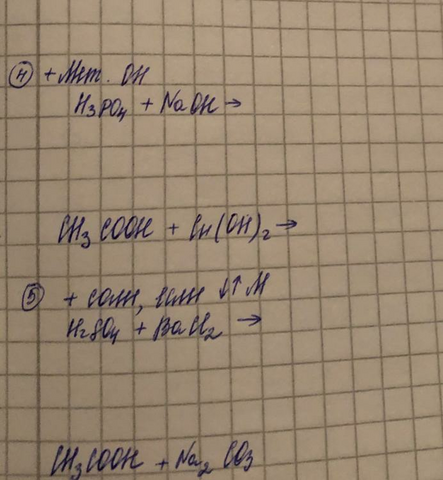 ④ + Мет. ОН
H₃PO₄ + NaOH →
CH₃COOH + Cu(OH)₂ →
⑤ + соли, если ↓↑ М
H₂SO₄ + BaCl₂ →
CH₃COOH + Na₂CO₃